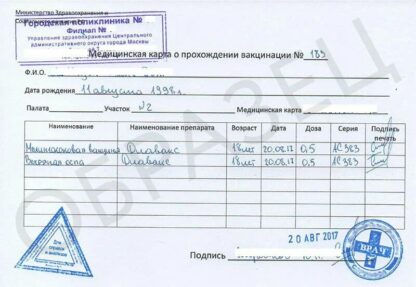 Министерство Здравоохранения и
Городская поликлиника №
Филиал № .
Управление здравоохранения Центрального
административного округа города Москвы
Медицинская карта о прохождении вакцинации № 183
Ф.И.О.
Дата рождения 11 августа 1998 г.
Палата Участок №2 Медицинская карта
Наименование Наименование препарата Возраст Дата Доза Серия Подпись печать
вакцина Флавакс 18 лет 20.08.17 0,5 АС383
Ветряная оспа Флавакс 18 лет 20.08.17 0,5 АС383
ОБРАЗЕЦ
20 АВГ 2017
Для справок и анализов
ВРАЧ
Подпись